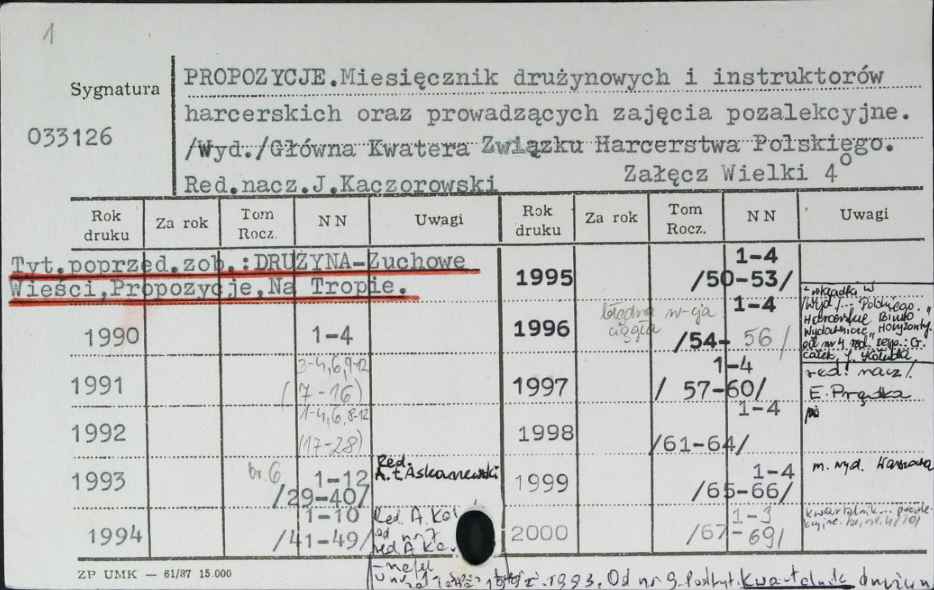 1
Sygnatura
033126
PROPOZYCJE.Miesięcznik drużynowych i instruktorów
harcerskich oraz prowadzących zajęcia pozalekcyjne.
/Wyd./Główna Kwatera Związku Harcerstwa Polskiego.
Red.nacz.J.Kaczorowski Załęcz Wielki 4°
Rok druku Za rok Tom Rocz. N N Uwagi Rok druku Za rok Tom Rocz. N N Uwagi
Tyt.poprzed.zob.:DRUŻYNA-Zuchowe
Wieści,Propozycje,Na Tropie.
1990 1-4
1991 3-4,6,9-12
(7-16)
1992 1-4,6,8-12
(17-28)
1993 br. 6 1-12
/29-40/
Red.
1994 1-10
/41-49/
Red. A. 
od nr 7
red A.
1995 1-4
/50-53/
błędna n-cja
ciągła
1996 1-4
/54-56/
+ wkładki w
/wyd./ Polskiego
Harcerskie Biuro
Wydawnicze "Horyzonty"
1997 1-4
/57-60/
red. nacz.
E. Prędka
1998 1-4
/61-64/
1999 1-4
/65-66/
m. wyd. Warszawa
2000 1-3
/67-69/
kwartalnik
1993. Od nr 9 Podtyt. Kwartalnik
ZP UMK — 61/87 15.000